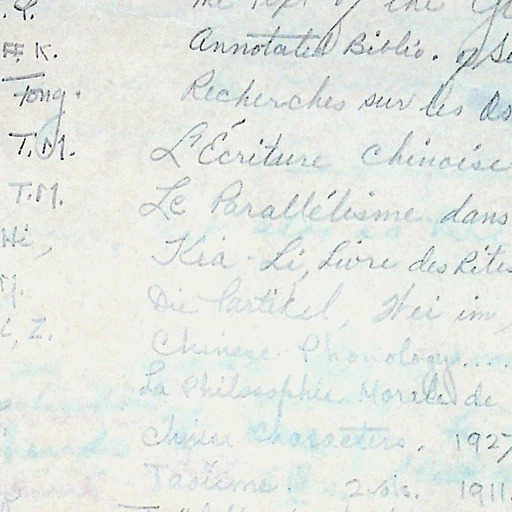 .Y. The Text of the
F. K. Annotated Biblio. of
Tong. Recherches sur les Os
T.M. L'Écriture Chinoise
T.M. Le Parallélisme dans
Hi, Kia-Li, Livre des Rites
M. Die Partikel, Wei im
i, Z. Chinese Phonology....
La Philosophie Morale de
Chinese Characters, 1927
Taoïsme. 2 vols. 1911.